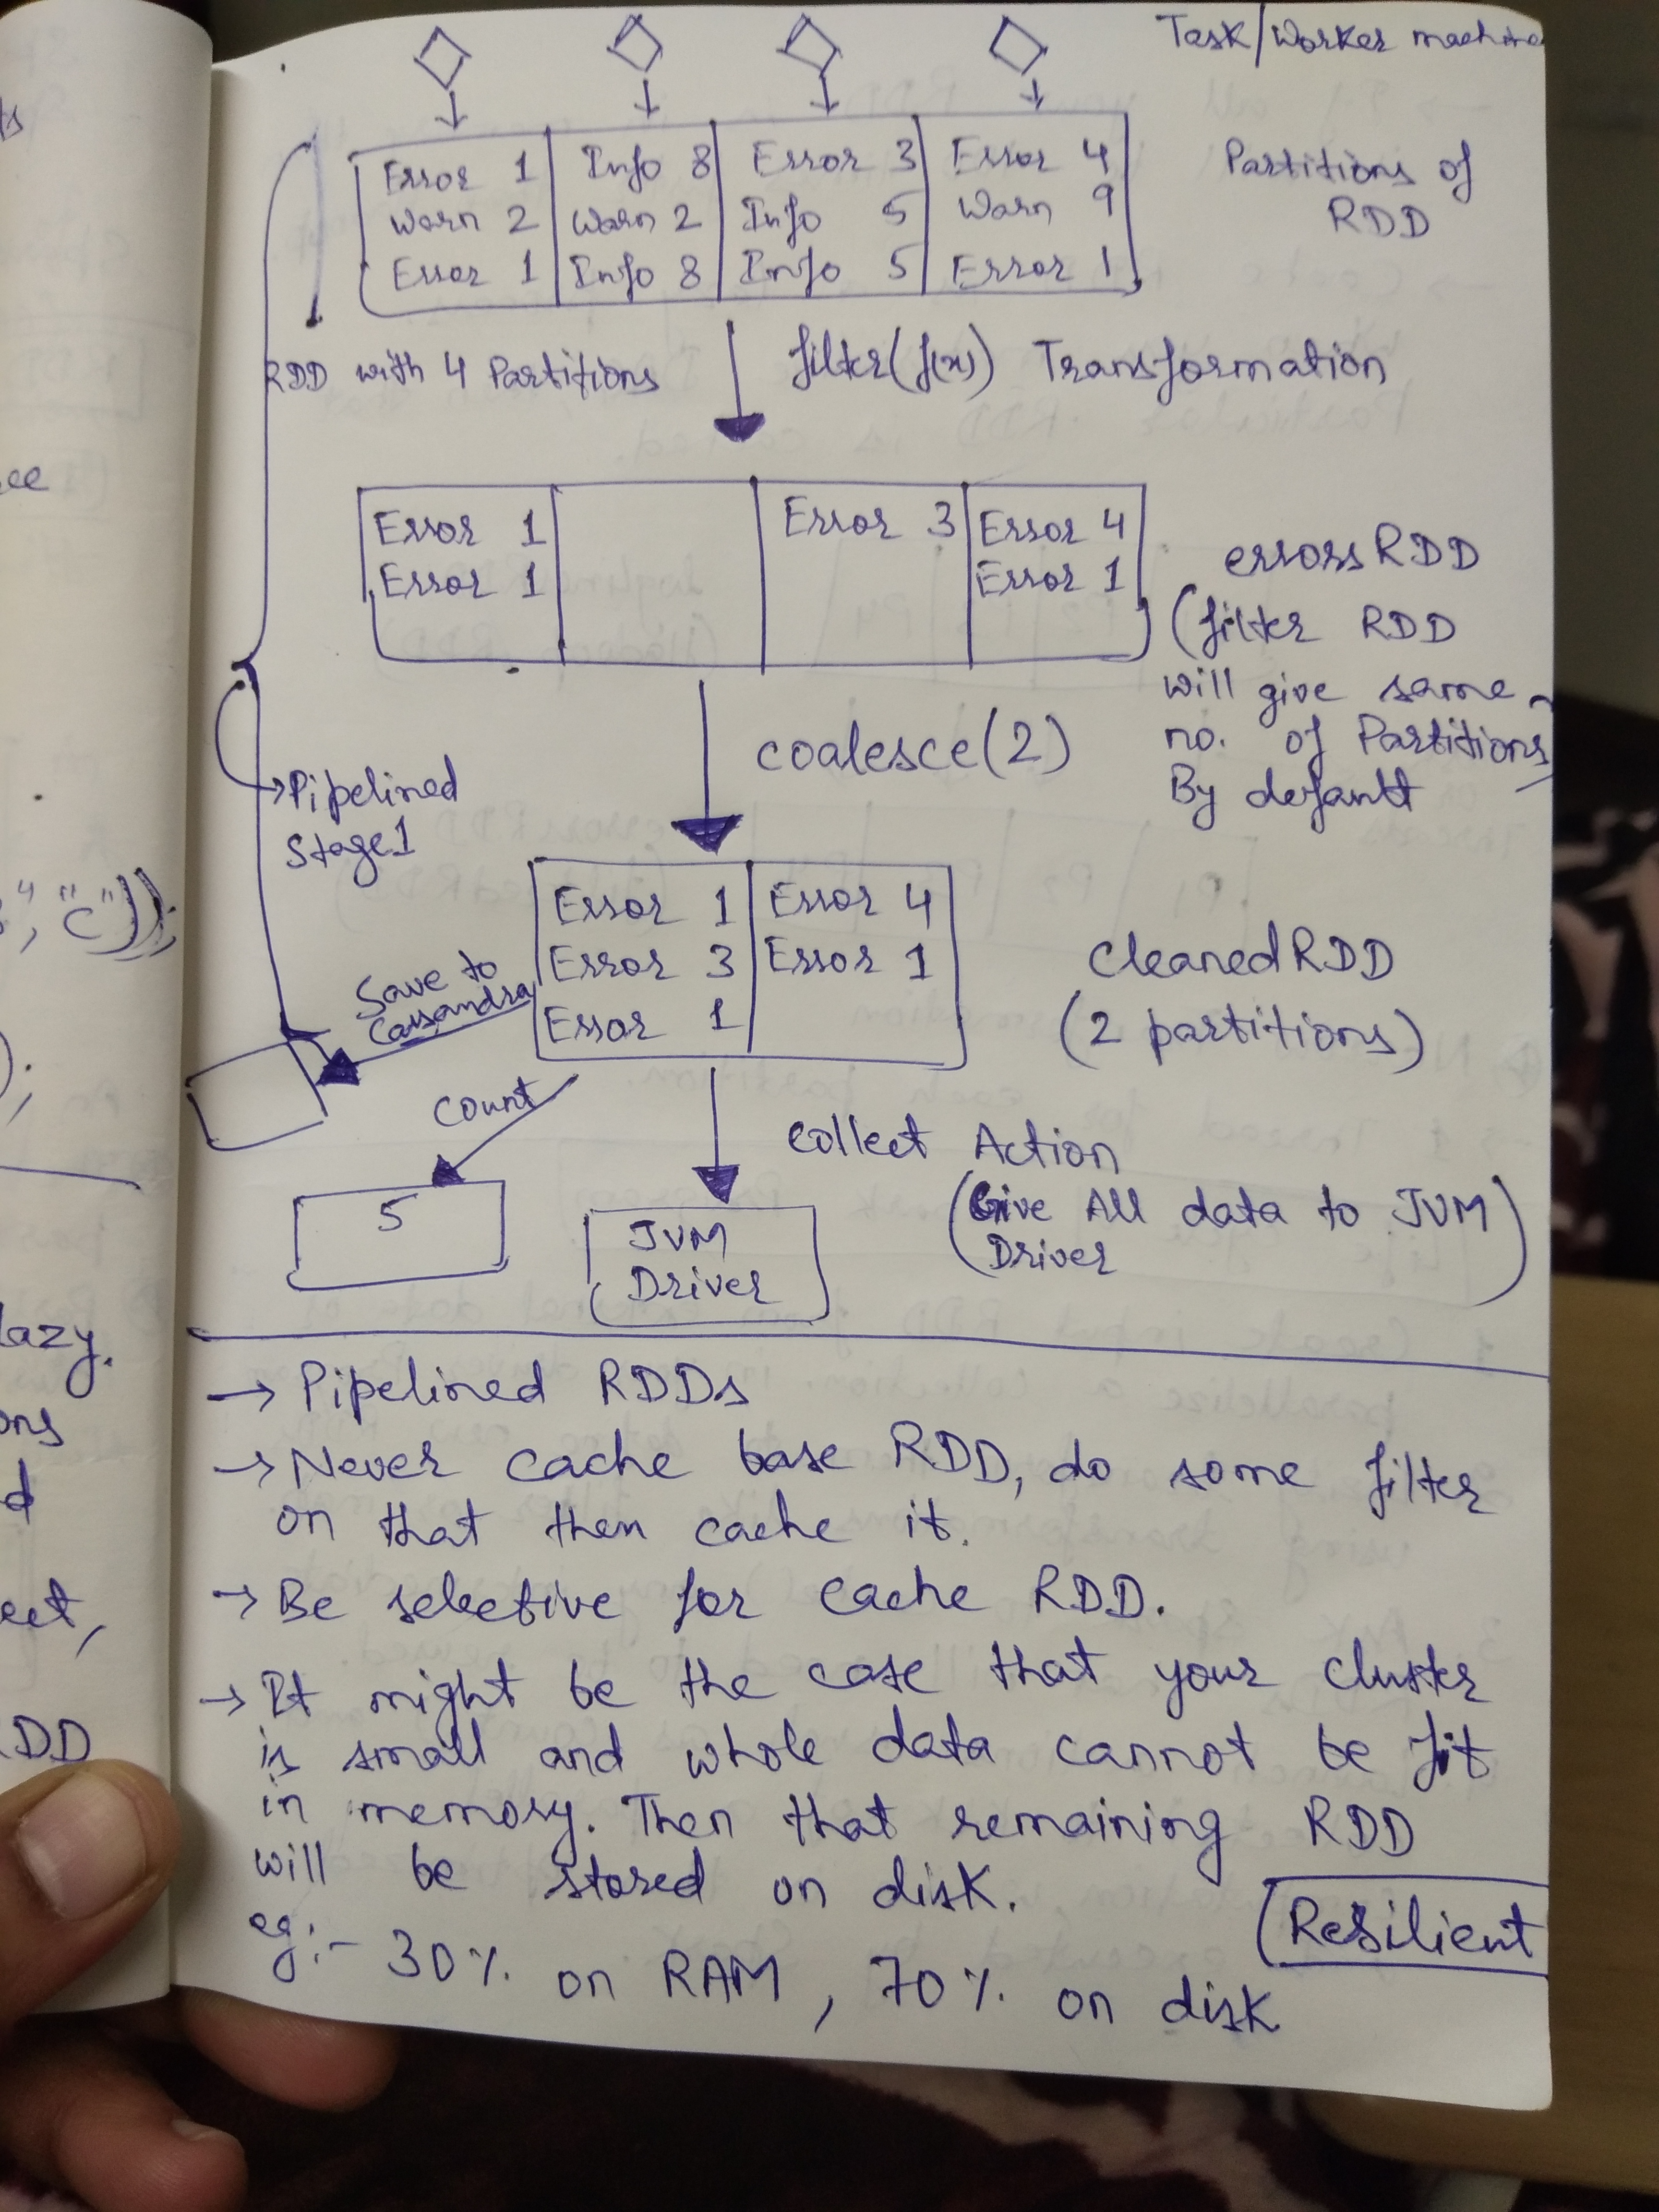 Task/Worker machine
Error 1 Info 8 Error 3 Error 4
Warn 2 Warn 2 Info 5 Warn 9
Error 1 Info 8 Info 5 Error 1
Partitions of
RDD
RDD with 4 Partitions
filter(f(x)) Transformation
Error 1 Error 3 Error 4
Error 1 Error 1
errorsRDD
(filter RDD
will give same
no. of Partitions
By default
coalesce(2)
Pipelined
Stage1
Error 1 Error 4
Error 3 Error 1
Error 1
CleanedRDD
(2 partitions)
Save to
Cassandra
count
5
collect Action
(Give All data to JVM
Driver)
JVM
Driver
→ Pipelined RDDs
→ Never cache base RDD, do some filter
on that then cache it.
→ Be selective for cache RDD.
→ It might be the case that your cluster
is small and whole data cannot be fit
in memory. Then that remaining RDD
will be stored on disk.
eg:- 30% on RAM, 70% on disk
Resilient
ee
", "c"));
);
lazy.
ons
d
ect,
DD